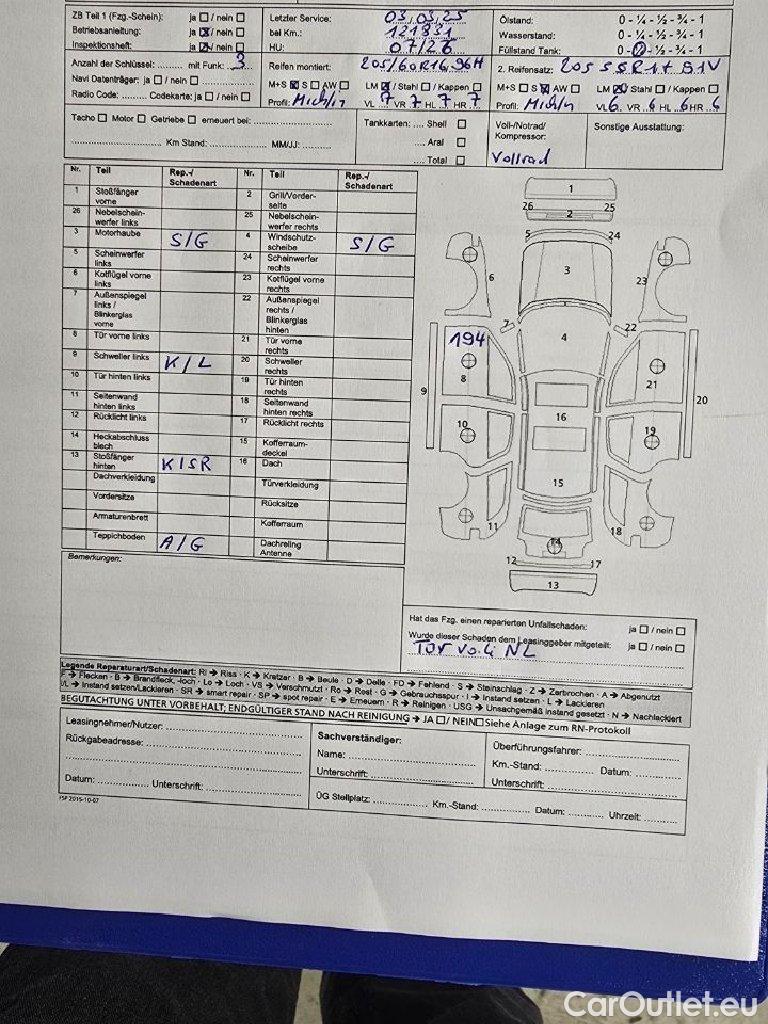 ZB Teil 1 (Fzg.-Schein): ja ☐ / nein ☐ Letzter Service: 03,03,25 Ölstand: 0 - ¼ - ½ - ¾ - 1
Betriebsanleitung: ja ☒ / nein ☐ bei Km.: 121831 Wasserstand: 0 - ¼ - ½ - ¾ - 1
Inspektionsheft: ja ☒ / nein ☐ HU: 07/26 Füllstand Tank: 0 - ¼ - ½ - ¾ - 1
Anzahl der Schlüssel: ...... mit Funk: 3 Reifen montiert: 205/60R16,96H 2. Reifensatz: 205
Navi Datenträger: ja ☐ / nein ☐ M+S ☒ S ☐ AW ☐ LM ☒ / Stahl ☐ / Kappen ☐ M+S ☐ S ☒ AW ☐ LM ☒ / Stahl ☐ / Kappen ☐
Radio Code: ........ Codekarte: ja ☐ / nein ☐ Profil: VL 7 VR 7 HL 7 HR 7 Profil: VL 6 VR 6 HL 6 HR 6
Tacho ☐ Motor ☐ Getriebe ☐ erneuert bei: ........ Tankkarten: .... Shell ☐ Voll-/Notrad/ Sonstige Ausstattung:
.... Aral ☐ Kompressor:
........ Km Stand: ........ MM/JJ: ........ .... Total ☐ Vollrad
Nr. Teil Rep.-/ Schadenart Nr. Teil Rep.-/ Schadenart
1 Stoßfänger vorne 2 Grill/Vorderseite
26 Nebelscheinwerfer links 25 Nebelscheinwerfer rechts
3 Motorhaube S/G 4 Windschutzscheibe S/G
5 Scheinwerfer links 24 Scheinwerfer rechts
6 Kotflügel vorne links 23 Kotflügel vorne rechts
7 Außenspiegel links / Blinkerglas vorne 22 Außenspiegel rechts / Blinkerglas hinten
8 Tür vorne links 21 Tür vorne rechts
9 Schweller links K/L 20 Schweller rechts
10 Tür hinten links 19 Tür hinten rechts
11 Seitenwand hinten links 18 Seitenwand hinten rechts
12 Rücklicht links 17 Rücklicht rechts
14 Heckabschlussblech 15 Kofferraumdeckel
13 Stoßfänger hinten K/SR 16 Dach
Dachverkleidung Türverkleidung
Vordersitze Rücksitze
Armaturenbrett Kofferraum
Teppichboden A/G Dachreling Antenne
Bemerkungen:
1
26 25
2
5 24
3
6 23
7 22
194 4
8 21
9 20
10 16 19
15
11 18
14
12 17
13
Hat das Fzg. einen reparierten Unfallschaden: ja ☐ / nein ☐
Wurde dieser Schaden dem Leasinggeber mitgeteilt: ja ☐ / nein ☐
Tür vo. li NL
Legende Reparaturart/Schadenart: RI → Riss · K → Kratzer · B → Beule · D → Delle · FD → Fehlend · S → Steinschlag · Z → Zerbrochen · A → Abgenutzt
F → Flecken · B → Brandfleck, -loch · Lo → Loch · VS → Verschmutzt · Ro → Rost · G → Gebrauchsspur · I → Instand setzen · L → Lackieren
I/L → Instand setzen/Lackieren · SR → smart repair · SP → spot repair · E → Erneuern · R → Reinigen · USG → Unsachgemäß instand gesetzt · N → Nachlackiert
BEGUTACHTUNG UNTER VORBEHALT; ENDGÜLTIGER STAND NACH REINIGUNG → JA ☐ / NEIN ☐ Siehe Anlage zum RN-Protokoll
Leasingnehmer/Nutzer: ........ Sachverständiger: Überführungsfahrer: ........
Rückgabeadresse: ........ Name: ........ Km.-Stand: ........ Datum: ........
Unterschrift: ........ Unterschrift: ........
Datum: ........ Unterschrift: ........ ÜG Stellplatz: ........ Km.-Stand: ........ Datum: ........ Uhrzeit: ........
CarOutlet.eu